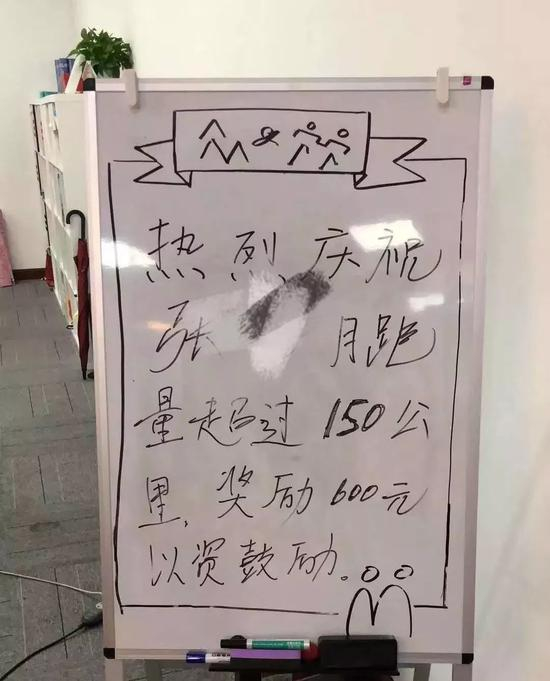 热烈庆祝
张 月跑
量超过150公
里,奖励600元
以资鼓励。